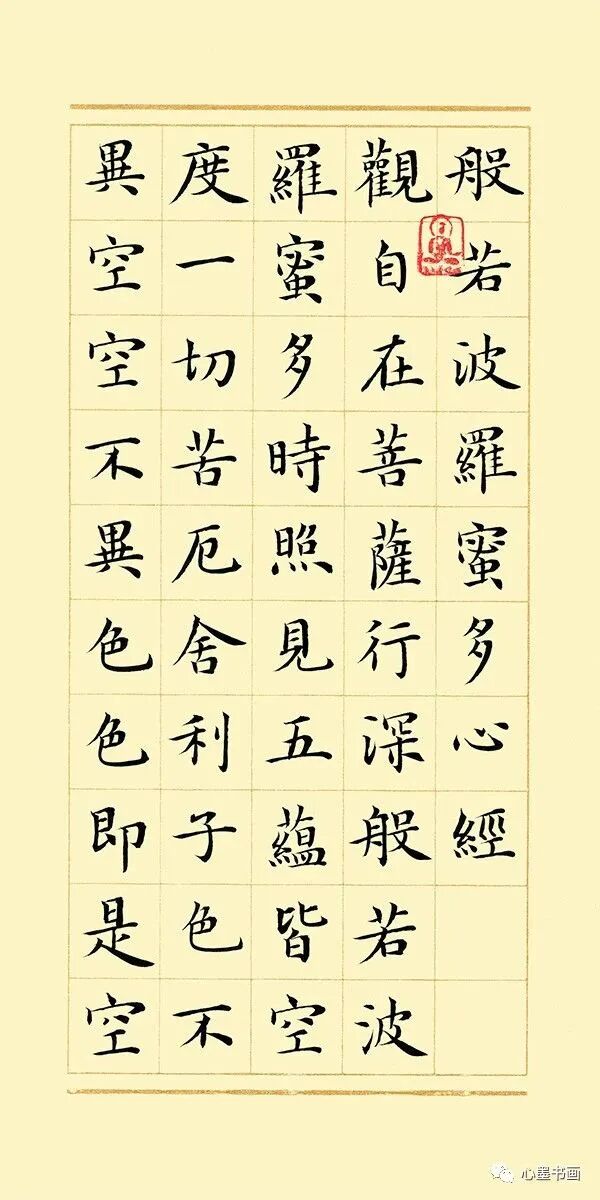 般若波羅蜜多心經
觀自在菩薩行深般若波
羅蜜多時照見五蘊皆空
度一切苦厄舍利子色不
異空空不異色色即是空
心墨书画